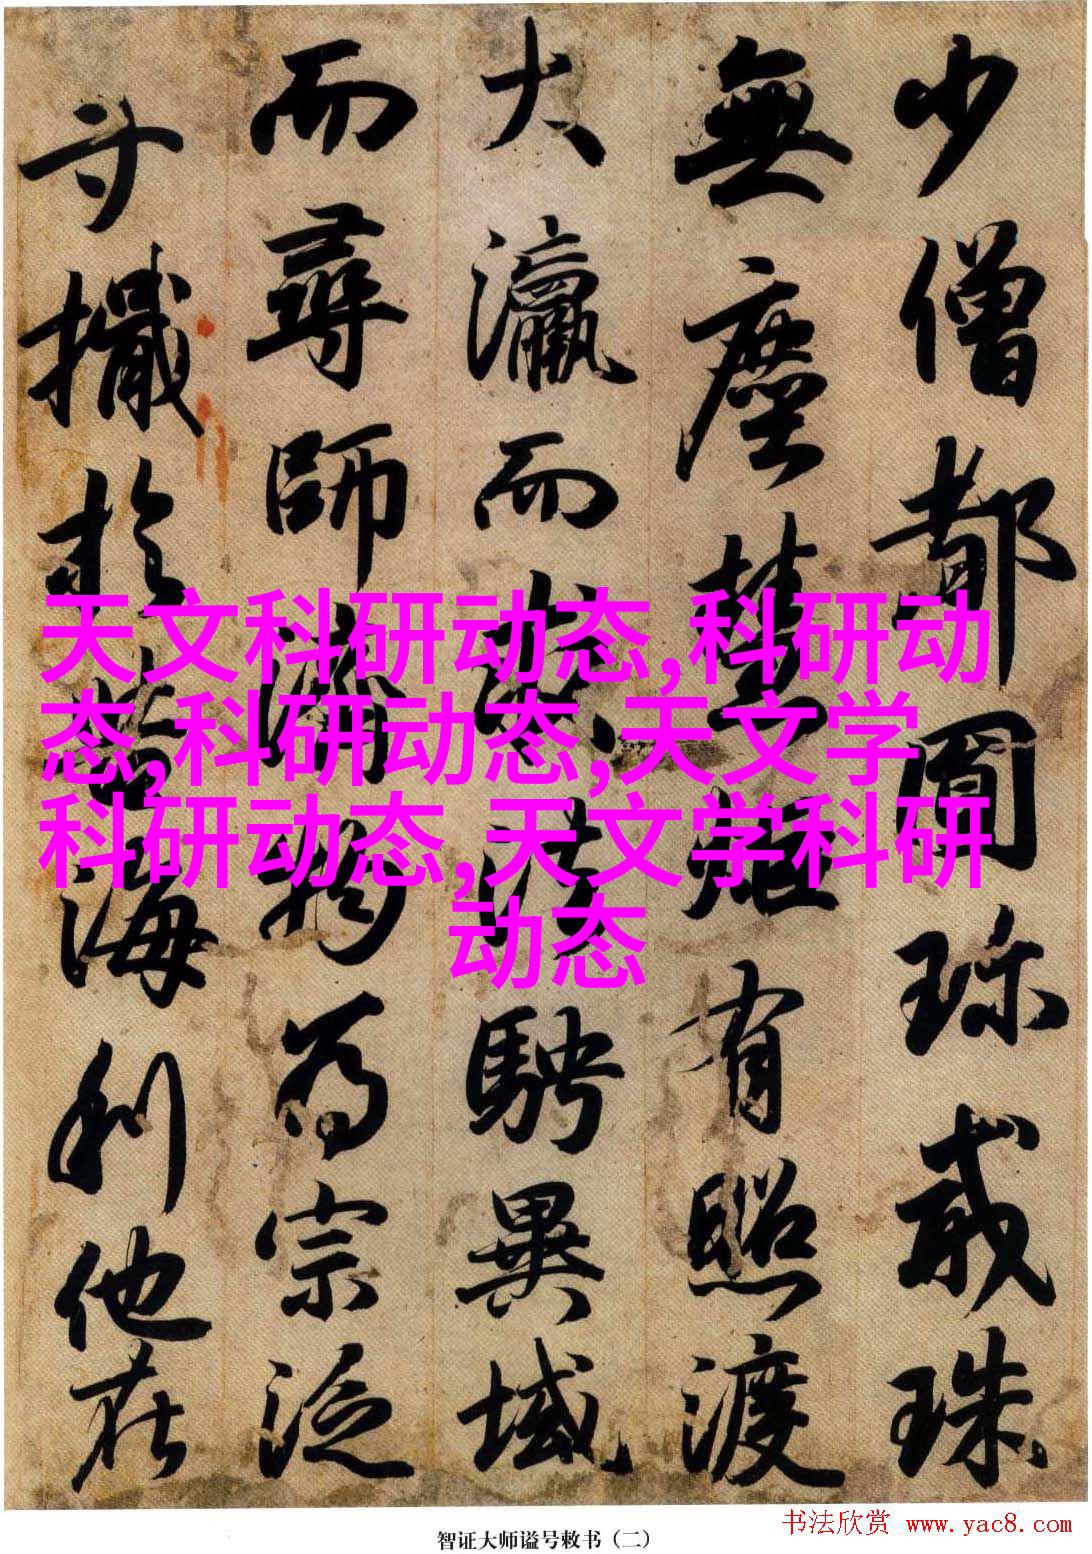 少僧都圓珎戒珠
無塵慧炬有照渡
大瀛而求法騁異域
而尋師濟物為宗泛
寸檝於苦海利他在
天文科研动态,科研动
态,科研动态,天文学
科研动态,天文学科研
动态
智证大师谥号敕书（二）
书法欣赏 www.yac8.com